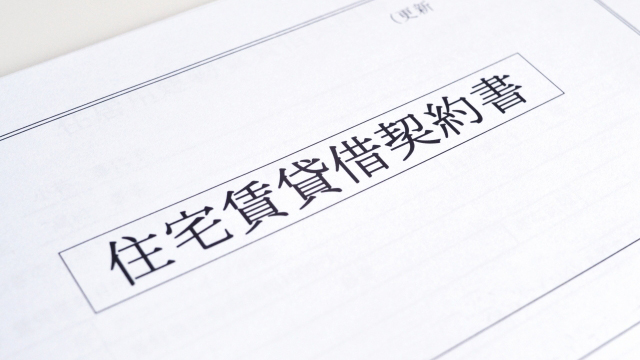 (更新
住宅賃貸借契約書